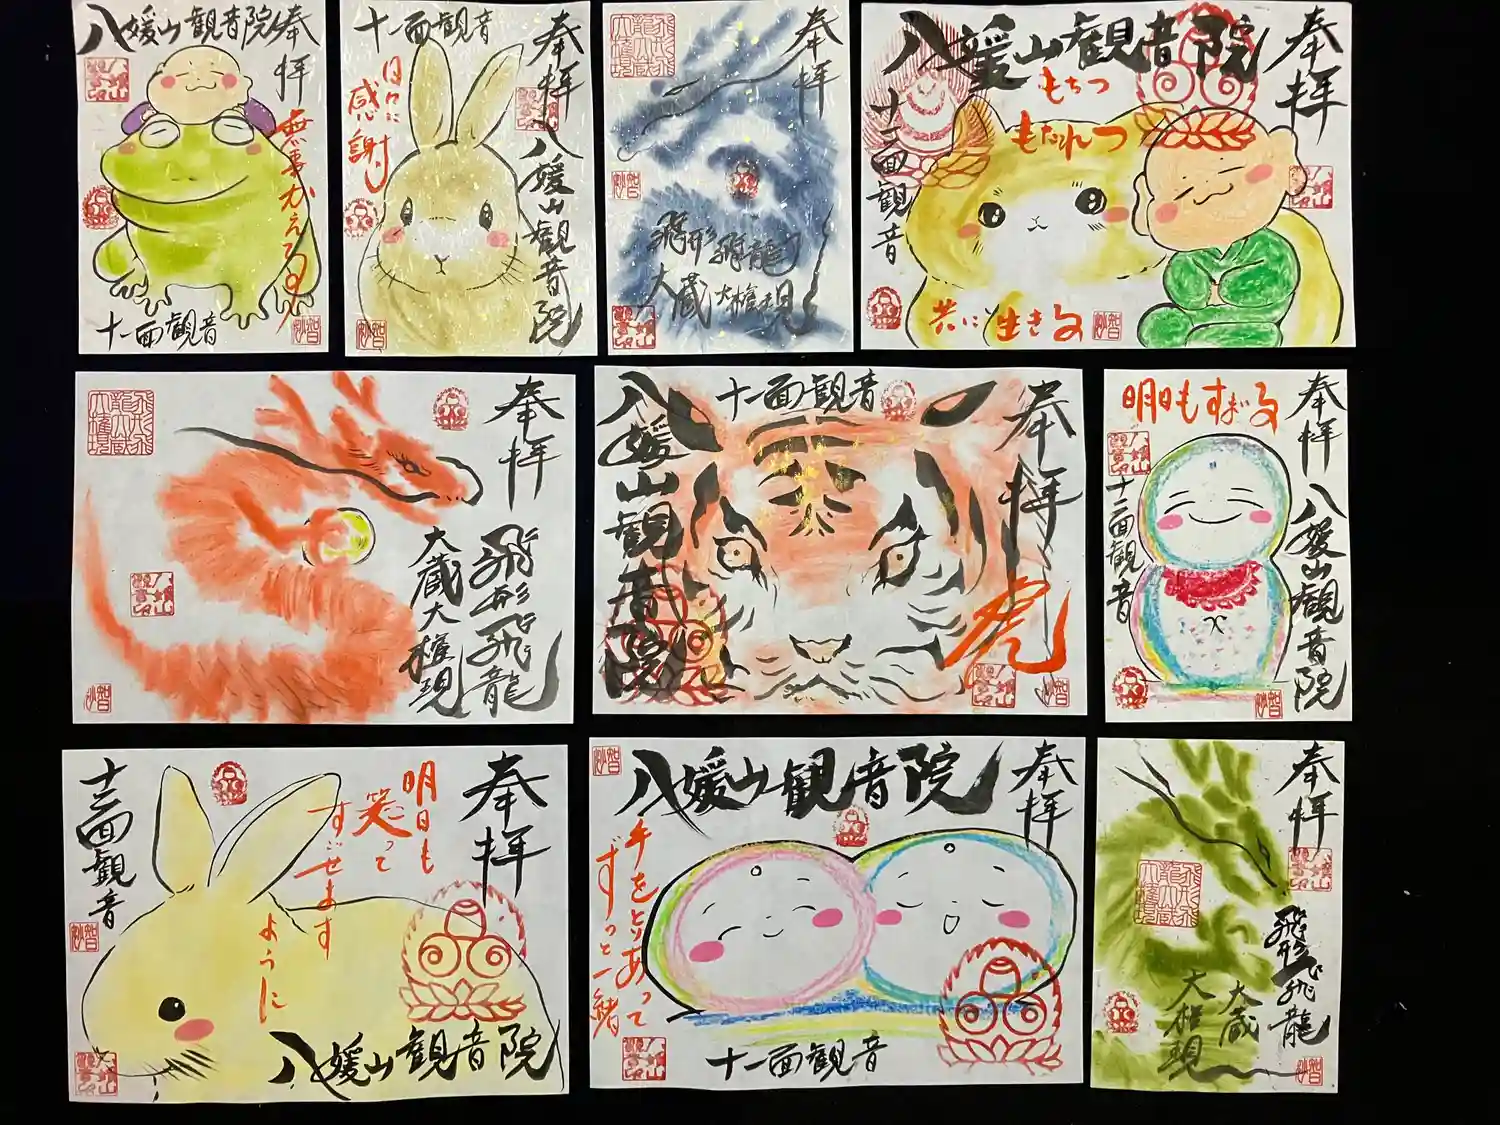 八媛山観音院
奉拝
無事かえる
十一面観音
十一面観音
奉拝
日々に
感謝
八媛山観音院
奉拝
飛形飛龍
大蔵大権現
八媛山観音院
奉拝
もちつ
もたれつ
十一面観音
共に生きる
奉拝
飛形飛龍
大蔵大権現
八媛山観音院
十一面観音
奉拝
虎
明日もすぎる
奉拝
八媛山観音院
十一面観音
奉拝
明日も
笑って
すごせます
ように
十一面観音
八媛山観音院
八媛山観音院
奉拝
手をとりあって
ずっと一緒
十一面観音
奉拝
飛形飛龍
大蔵
大権現